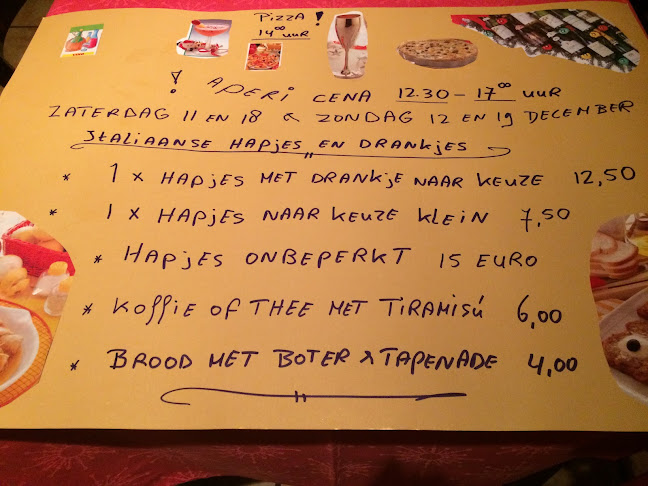 PIZZA !
14⁰⁰ UUR
! APERI CENA 12.30 - 17⁰⁰ UUR
ZATERDAG 11 EN 18 & ZONDAG 12 EN 19 DECEMBER
ITALIAANSE HAPJES EN DRANKJES
* 1 x HAPJES MET DRANKJE NAAR KEUZE 12,50
* 1 x HAPJES NAAR KEUZE KLEIN 7,50
* HAPJES ONBEPERKT 15 EURO
* KOFFIE OF THEE MET TIRAMISÚ 6,00
* BROOD MET BOTER & TAPENADE 4,00